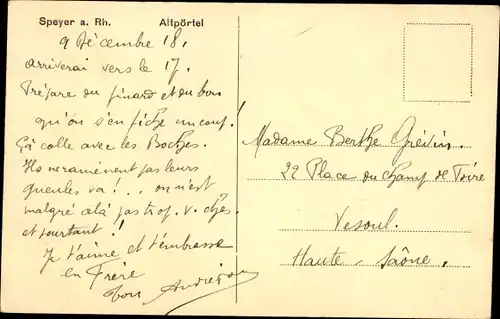 Speyer a. Rh. Altpörtel
9 Décembre 18.
arriverai vers le 17.
Prépare du pinard et du bon
qu'on s'en fiche un coup!
Ça colle avec les Boches
Ils ne ramènent pas leurs
gueules va! .. on n'est
malgré cela pas trop v. ches
et pourtant!
Je t'aime et t'embrasse
en Frère
ton
Madame Berthe Grévin.
22 Place du Champ de Foire
Vesoul.
Haute-Saône.